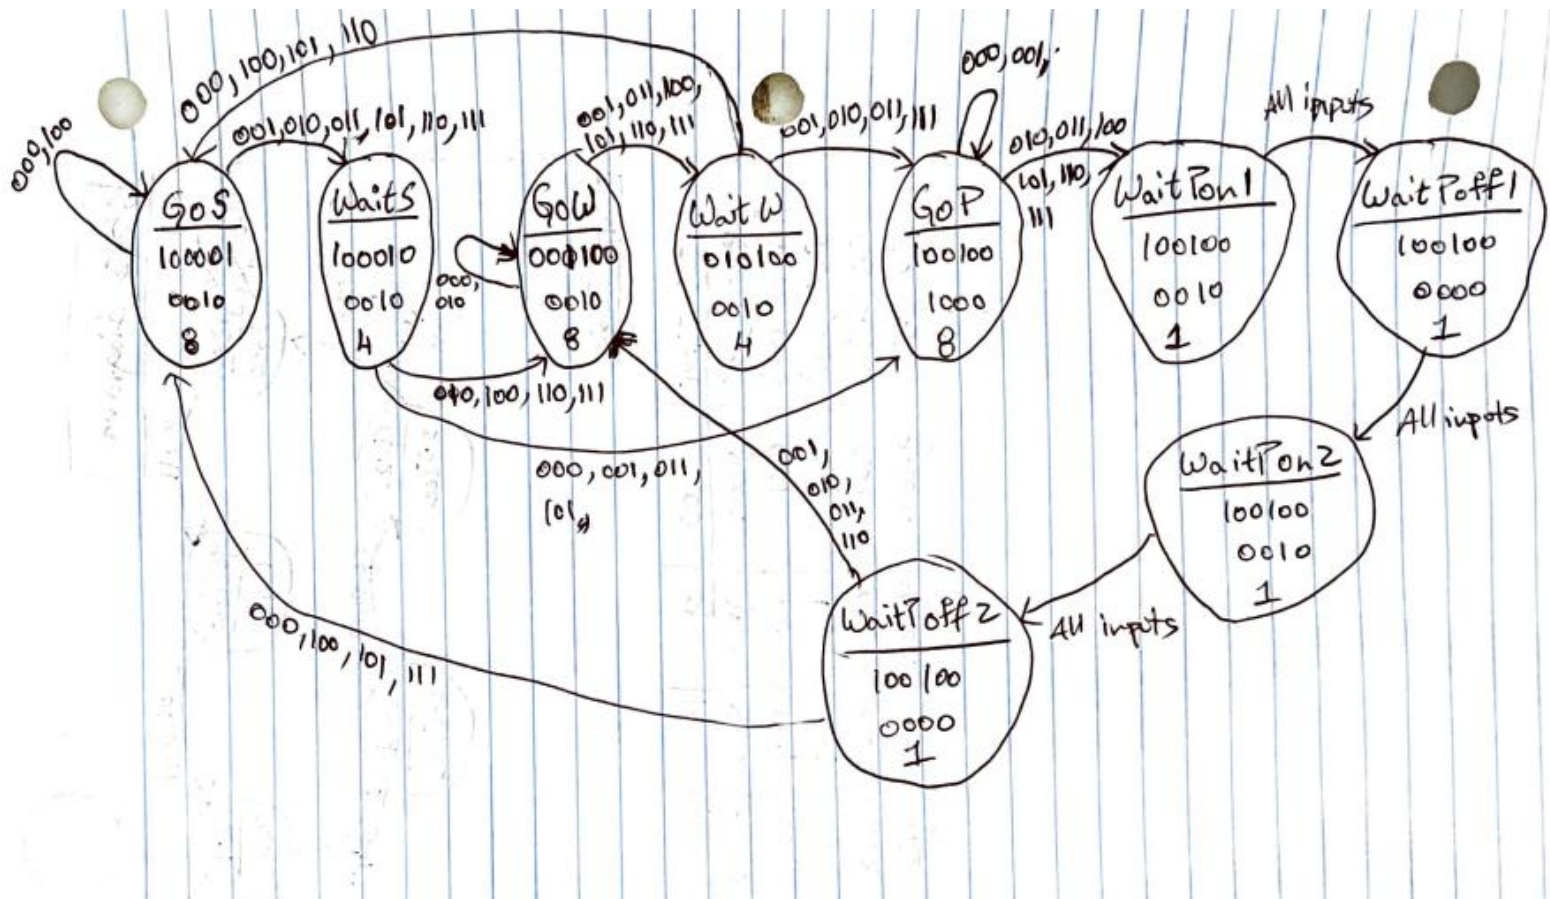 000,100,101,110
000,100
001,010,011,101,110,111
001,011,100,
101,110,111
001,010,011,111
000,001,.
010,011,100
101,110,
111
All inputs
GoS
100001
0010
8
WaitS
100010
0010
4
GoW
0010
8
000,
010
WaitW
010100
0010
4
GoP
100100
1000
8
WaitPon1
100100
0010
1
WaitPoff1
100100
0000
1
100,110,111
000,001,011,
101,
001,
010,
011,
110
All inputs
WaitPon2
100100
0010
1
All inputs
WaitPoff2
100100
0000
1
000,100,101,111